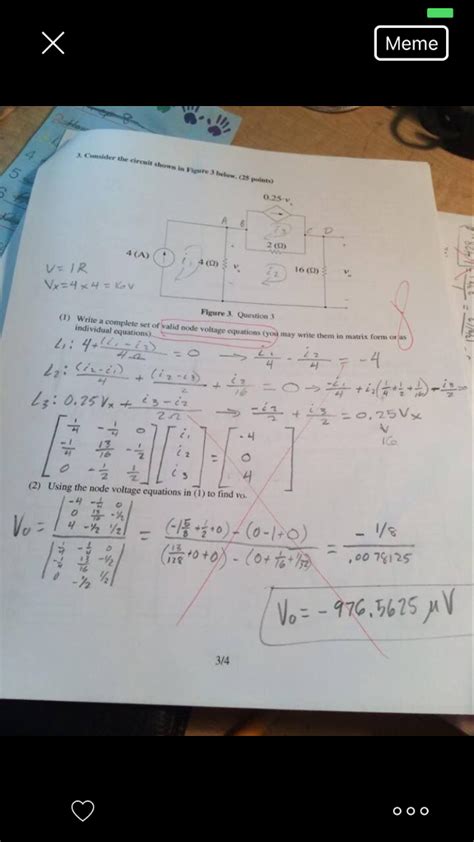 Meme
3. Consider the circuit shown in Figure 3 below. (25 points)
0.25·vₓ
A B C D
i₃
2 (Ω)
4 (A)
i₁
4 (Ω)
vₓ
i₂
16 (Ω)
vₒ
V = IR
Vx = 4 x 4 = 16V
Figure 3. Question 3
(1) Write a complete set of valid node voltage equations (you may write them in matrix form or as
individual equations).
L₁: 4 + (i₁ - i₂)/4Ω = 0 → i₁/4 - i₂/4 = -4
L₂: (i₂-i₁)/4 + (i₂-i₃)/2 + i₂/16 = 0 → -i₁/4 + i₂(1/4 + 1/2 + 1/16) - i₃/2 = 0
L₃: 0.25Vx + i₃-i₂/2Ω → -i₂/2 + i₃/2 = 0.25Vx
16
[1/4 -1/4 0] [i₁] [-4]
[-1/4 13/16 -1/2] [i₂] = [0]
[0 -1/2 1/2] [i₃] [4]
(2) Using the node voltage equations in (1) to find vo.
Vo = |-4 -1/4 0; 0 13/16 -1/2; 4 -1/2 1/2| / |1/4 -1/4 0; -1/4 13/16 -1/2; 0 -1/2 1/2| = (-1 5/8 + 1/2 + 0) - (0-1+0) / (13/128 + 0 + 0) - (0 + 1/16 + 1/32) = -1/8 / .0078125
Vo = -976.5625 μV
3/4